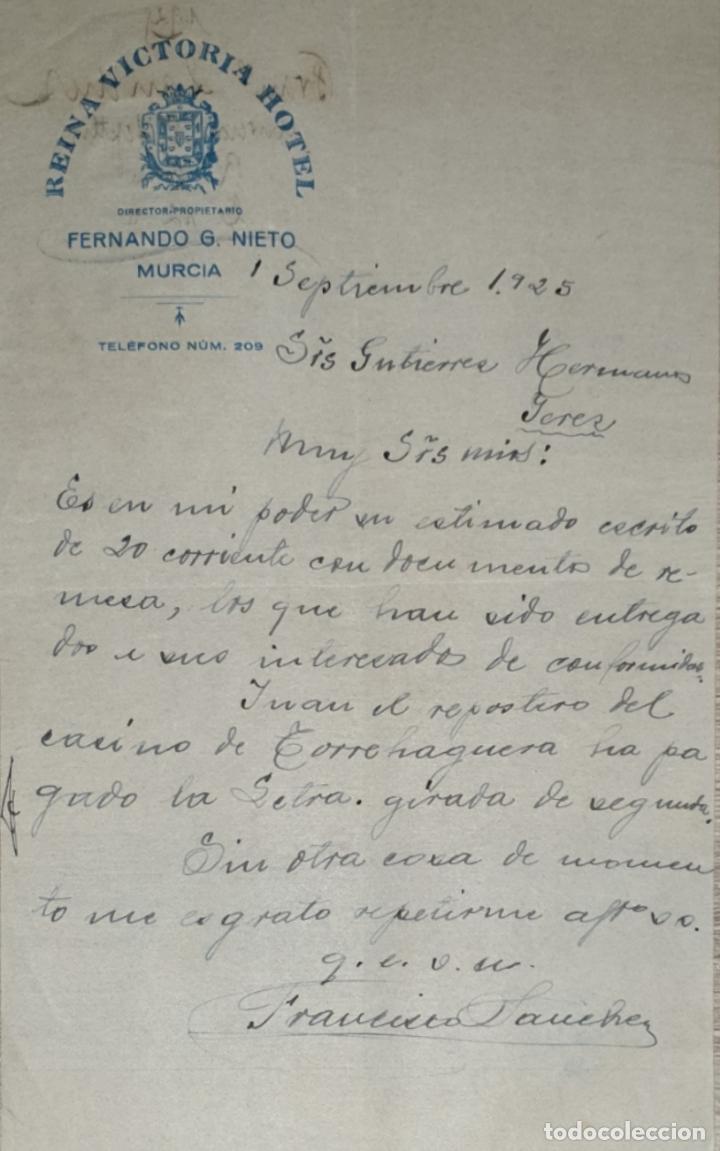 REINA VICTORIA HOTEL
DIRECTOR-PROPIETARIO
FERNANDO G. NIETO
MURCIA
TELÉFONO NÚM. 209
1 Septiembre 1.925
Srs Gutierrez Hermanos
Jerez
Muy Srs mios:
Es en mi poder su estimado escrito
de 20 corriente con documentos de re-
mesa, los que han sido entrega
dos a sus interesados de conformidad.
Juan el repostero del
casino de Torrehaguera ha pa
gado la Letra. girada de segunda.
Sin otra cosa de momen
to me es grato repetirme aftº s.s.
q. e. s. m.
Francisco Sanchez
todocoleccion.net